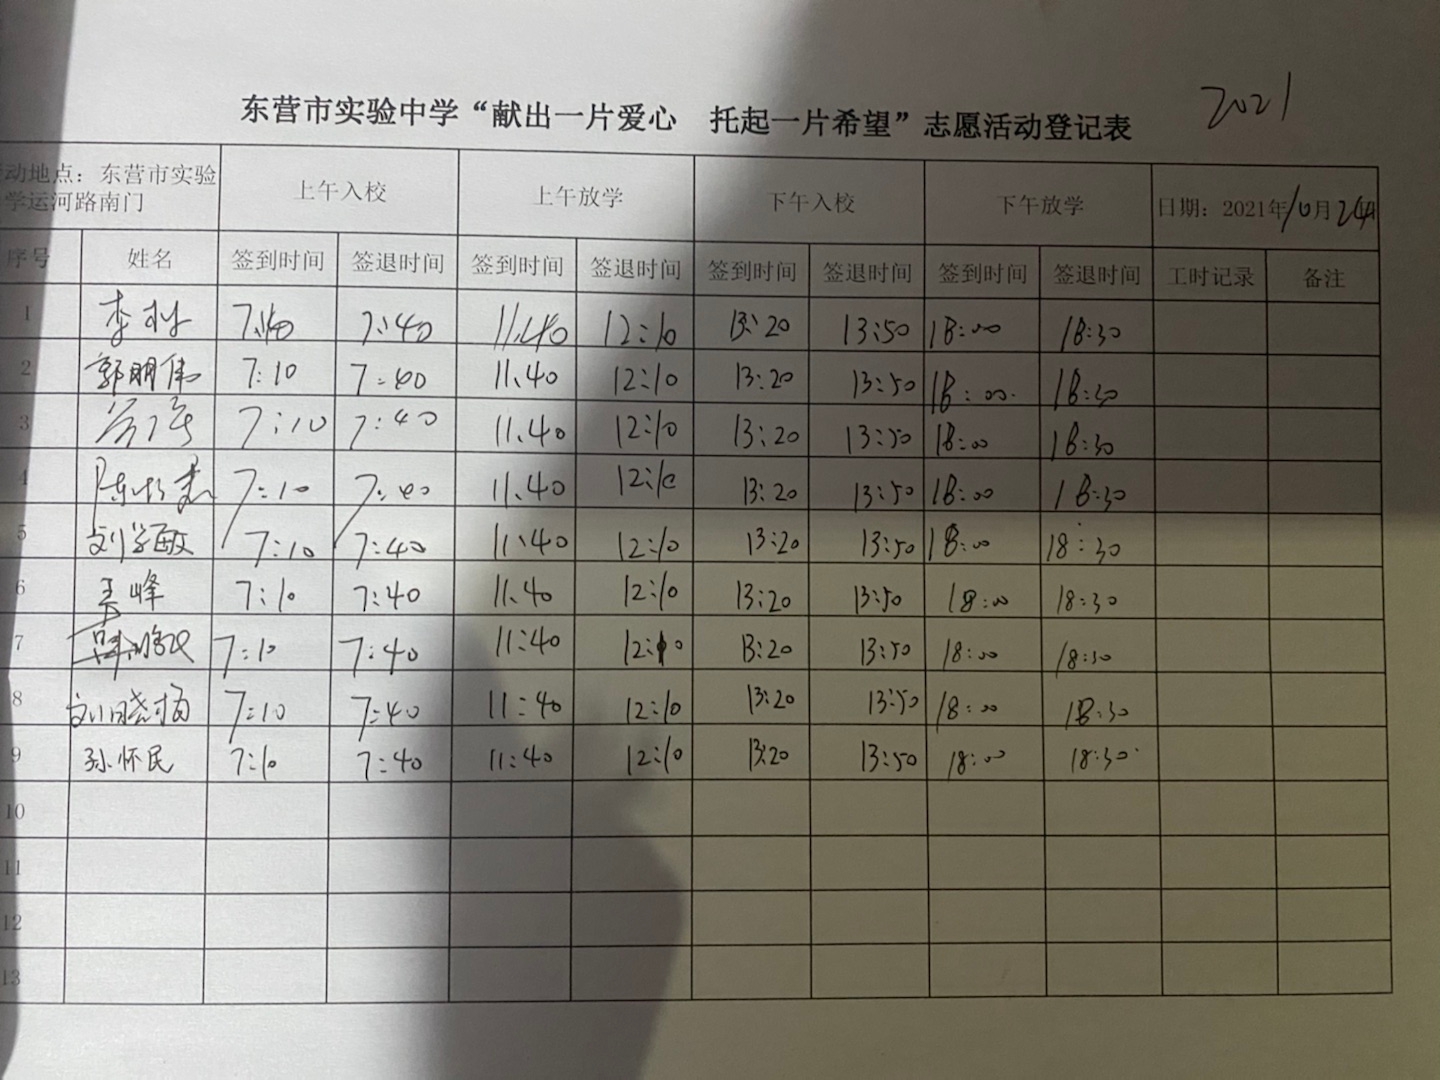 2021
东营市实验中学“献出一片爱心 托起一片希望”志愿活动登记表
动地点：东营市实验 上午入校 上午放学 下午入校 下午放学 日期：2021年10月24日
学运河路南门
序号 姓名 签到时间 签退时间 签到时间 签退时间 签到时间 签退时间 签到时间 签退时间 工时记录 备注
1 7:10 7:40 11:40 12:10 13:20 13:50 18:00 18:30
2 郭明伟 7:10 7:40 11:40 12:10 13:20 13:50 18:00 18:30
3 7:10 7:40 11:40 12:10 13:20 13:50 18:00 18:30
4 7:10 7:40 11:40 12:10 13:20 13:50 18:00 18:30
5 刘学敏 7:10 7:40 11:40 12:10 13:20 13:50 18:00 18:30
6 7:10 7:40 11:40 12:10 13:20 13:50 18:00 18:30
7 7:10 7:40 11:40 12:10 13:20 13:50 18:00 18:30
8 刘晓杨 7:10 7:40 11:40 12:10 13:20 13:50 18:00 18:30
9 孙怀民 7:10 7:40 11:40 12:10 13:20 13:50 18:00 18:30
10
11
12
13